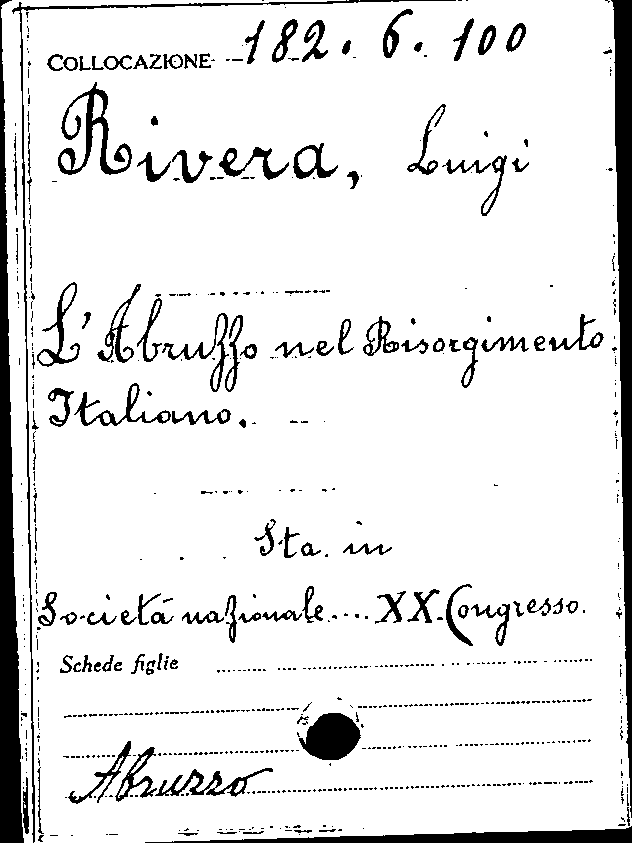 COLLOCAZIONE 182. 6. 100
Rivera, Luigi
L'Abruzzo nel Risorgimento
Italiano.
Sta. in
Società nazionale.... XX. Congresso.
Schede figlie
Abruzzo